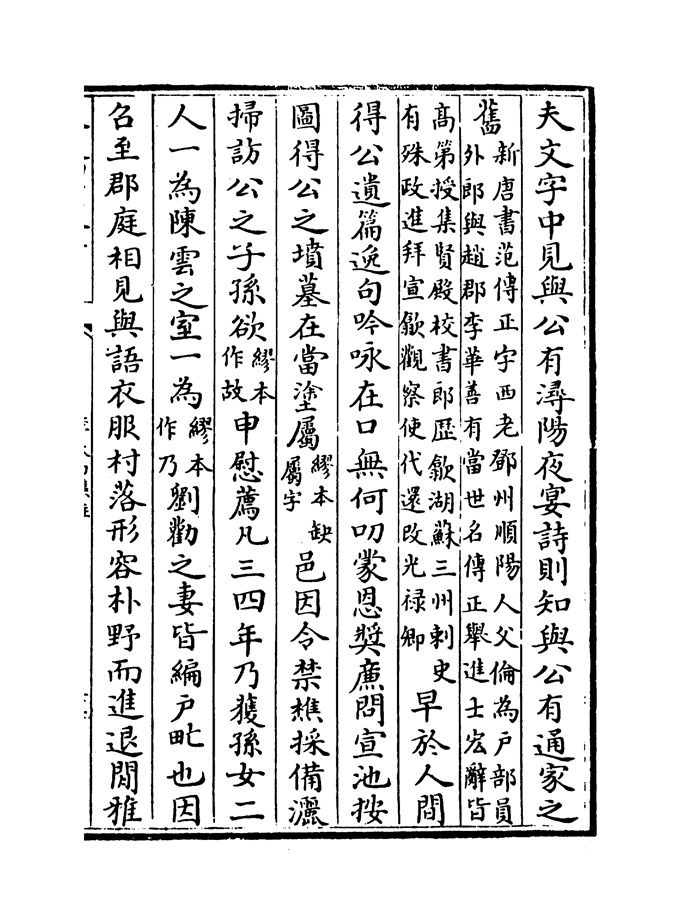 夫文字中見與公有潯陽夜宴詩則知與公有通家之
舊新唐書范傳正字西老鄧州順陽人父倫為户部員外郎與趙郡李華善有當世名傳正舉進士宏辭皆
髙第授集賢殿校書郎歴歙湖蘇三州刺史有殊政進拜宣歙觀察使代還改光禄卿早於人間
得公遺篇逸句吟咏在口無何叨蒙恩奬廉問宣池按
圖得公之墳墓在當塗屬繆本缺屬字邑因令禁樵採備灑
掃訪公之子孫欲繆本作故申慰薦凡三四年乃獲孫女二
人一為陳雲之室一為繆本作乃劉勸之妻皆編户甿也因
召至郡庭相見與語衣服村落形容朴野而進退閒雅